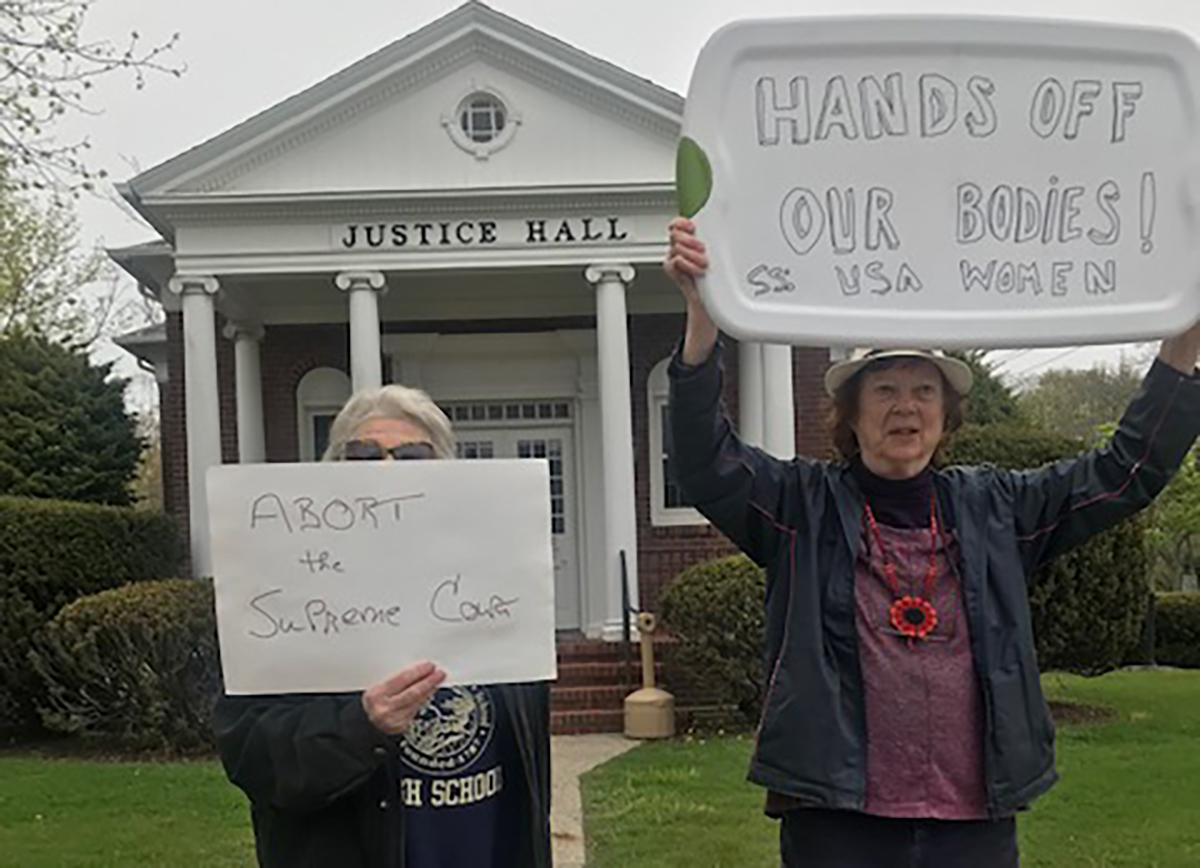 JUSTICE HALL
HANDS OFF
OUR BODIES!
SS: USA WOMEN
ABORT
the
SUPREME COURT
Founded 1787
GH SCHOOL